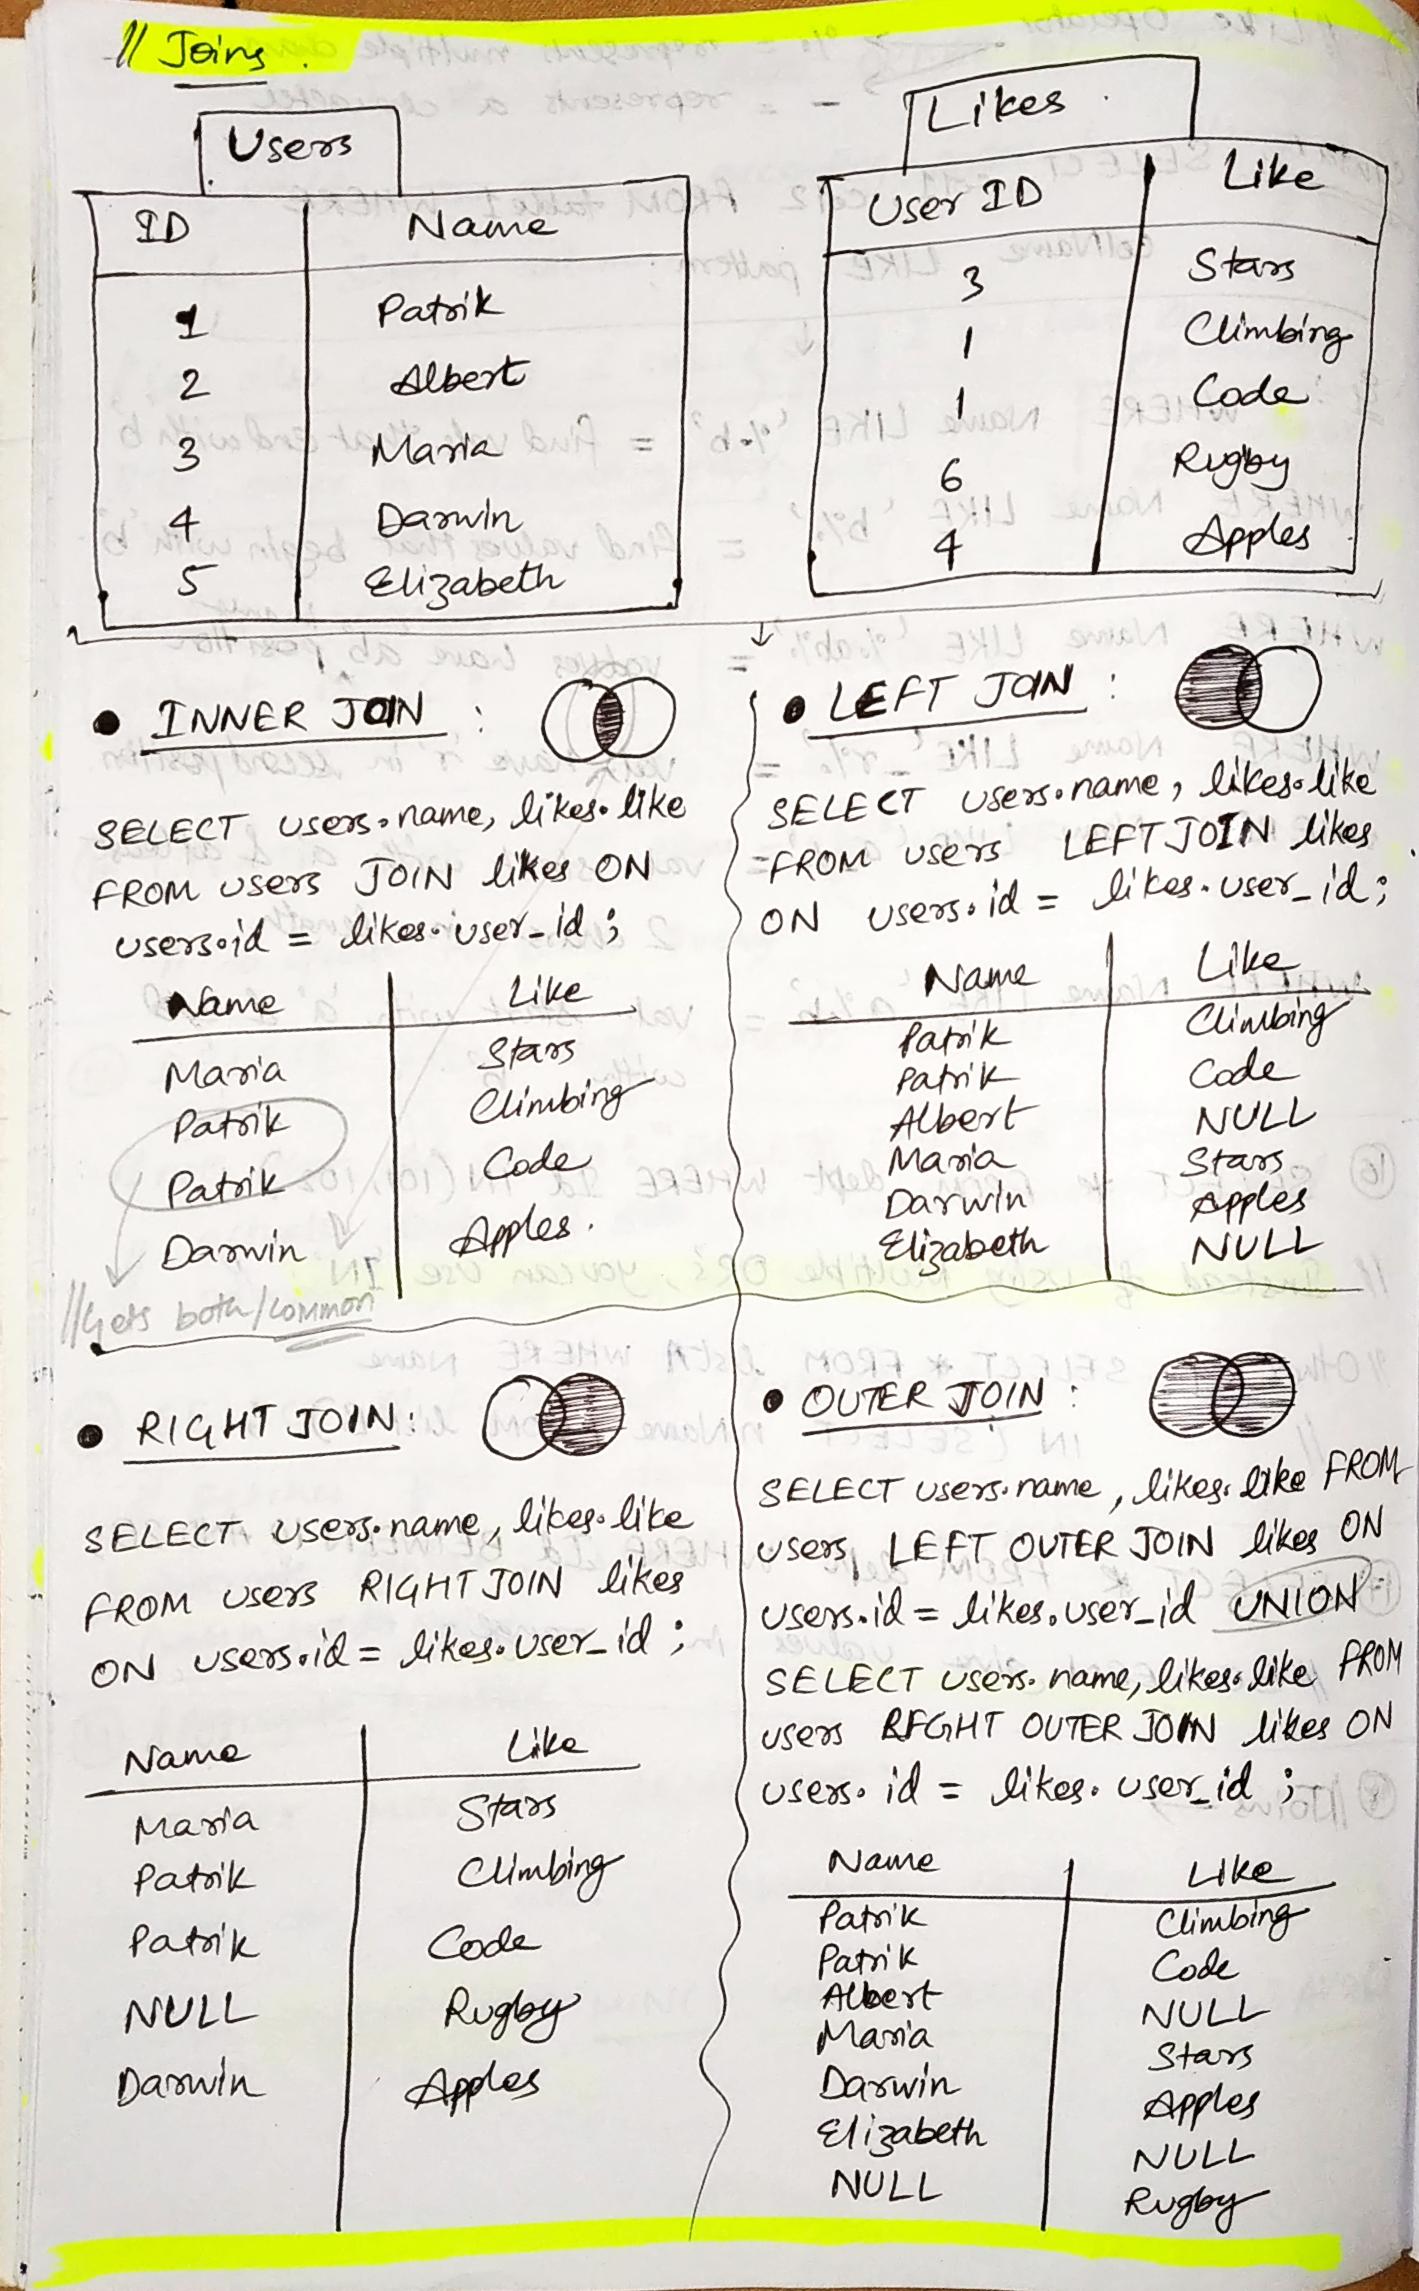 // Joins.
Users
ID Name
1 Patrik
2 Albert
3 Maria
4 Darwin
5 Elizabeth
Likes
User ID Like
3 Stars
1 Climbing
1 Code
6 Rugby
4 Apples
• INNER JOIN :
SELECT users.name, likes.like
FROM users JOIN likes ON
users.id = likes.user_id ;
Name Like
Maria Stars
Patrik Climbing
Patrik Code
Darwin Apples.
//Gets both/common
• LEFT JOIN :
SELECT users.name, likes.like
FROM users LEFT JOIN likes
ON users.id = likes.user_id;
Name Like
Patrik Climbing
Patrik Code
Albert NULL
Maria Stars
Darwin Apples
Elizabeth NULL
• RIGHT JOIN:
SELECT users.name, likes.like
FROM users RIGHT JOIN likes
ON users.id = likes.user_id ;
Name Like
Maria Stars
Patrik Climbing
Patrik Code
NULL Rugby
Darwin Apples
• OUTER JOIN :
SELECT users.name, likes.like FROM
users LEFT OUTER JOIN likes ON
users.id = likes.user_id UNION
SELECT users.name, likes.like FROM
users RIGHT OUTER JOIN likes ON
users.id = likes.user_id ;
Name Like
Patrik Climbing
Patrik Code
Albert NULL
Maria Stars
Darwin Apples
Elizabeth NULL
NULL Rugby